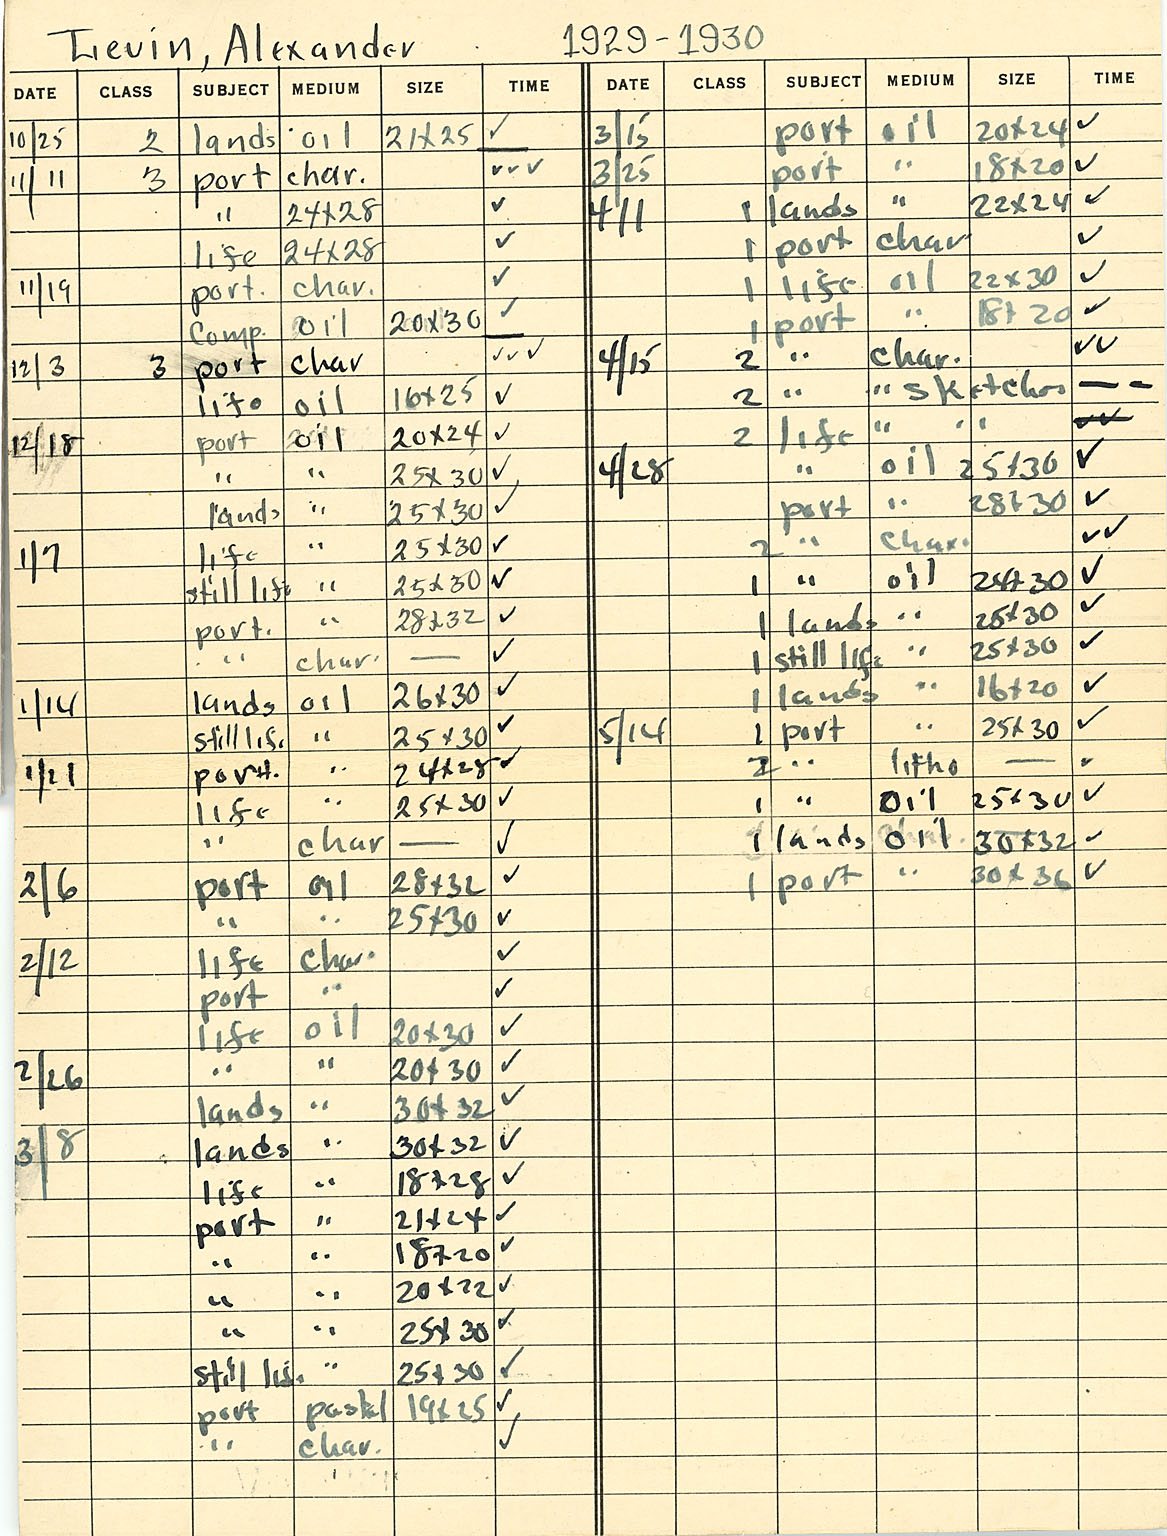 Levin, Alexander 1929-1930
DATE CLASS SUBJECT MEDIUM SIZE TIME
10/25 2 lands oil 21x25 ✓
11/11 3 port char. ✓✓✓
" 24x28 ✓
life 24x28 ✓
11/19 port. char. ✓
Comp. oil 20x30 ✓
12/3 3 port char ✓✓✓
life oil 16x25 ✓
12/18 port oil 20x24 ✓
" " 25x30 ✓
lands " 25x30 ✓
1/7 life " 25x30 ✓
still life " 25x30 ✓
port. " 28x32 ✓
" char. — ✓
1/14 lands oil 26x30 ✓
still lif. " 25x30 ✓
1/21 port. " 24x28 ✓
life " 25x30 ✓
" char — ✓
2/6 port oil 28x32 ✓
" " 25x30 ✓
2/12 life char. ✓
port " ✓
life oil 20x30 ✓
2/26 " " 20x30 ✓
lands " 30x32 ✓
3/8 lands " 30x32 ✓
life " 18x28 ✓
port " 21x24 ✓
" " 18x20 ✓
" " 20x22 ✓
" " 25x30 ✓
still lif. " 25x30 ✓
port pastel 19x25 ✓
" char. ✓
DATE CLASS SUBJECT MEDIUM SIZE TIME
3/15 port oil 20x24 ✓
3/25 port " 18x20 ✓
4/1 1 lands " 22x24 ✓
1 port char ✓
1 life oil 22x30 ✓
1 port " 18x20 ✓
4/15 2 " char. ✓✓
2 " " sketches — -
2 life " " ✓✓
4/28 " oil 25x30 ✓
port " 28x30 ✓
2 " char. ✓✓
1 " oil 24x30 ✓
1 lands " 25x30 ✓
1 still life " 25x30 ✓
1 lands " 16x20 ✓
5/14 1 port " 25x30 ✓
2 " litho — "
1 " oil 25x30 ✓
1 lands oil 30x32 ✓
1 port " 30x36 ✓